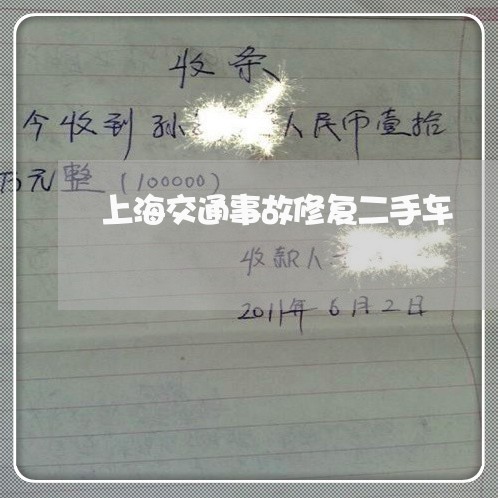 收条
今收到孙 人民币壹拾
万元整（100000）
上海交通事故修复二手车
收款人
2011年6月2日